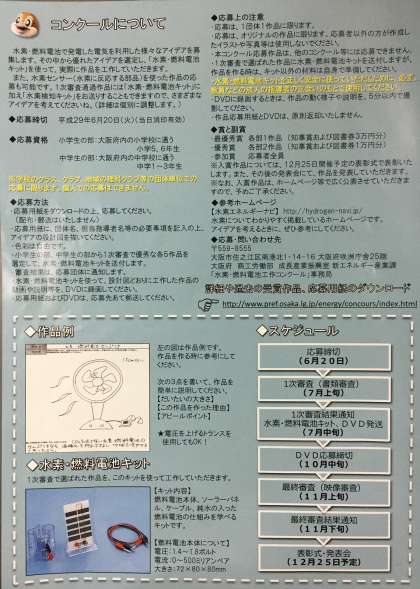 コンクールについて
水素・燃料電池で発電した電気を利用した様々なアイデアを募
集します。その中から優れたアイデアを選定し、「水素・燃料電池
キット」を使って、実際に作品を工作していただきます。
また、水素センサー（水素に反応する部品）を使った作品の応
募も可能です。1次審査通過作品には「水素・燃料電池キット」に
加え「水素検知キット」もお送りすることもできますので、さまざま
なアイデアを考えてくださいね。（詳細は個別に調整します。）
◆応募締切 平成29年6月20日（火）（当日消印有効）
◆応募資格 小学生の部：大阪府内の小学校に通う
小学5、6年生
中学生の部：大阪府内の中学校に通う
中学1～3年生
◆応募方法
・応募用紙をダウンロードの上、応募してください。
（配布・郵送はいたしません）
・応募用紙に、団体名、担当指導者名等の必要事項を記入の上、
アイデアの設計図を描いてください。
・色彩は自由です。
・小学生の部、中学生の部から1次審査で優秀な各5作品を
選定して、水素・燃料電池キットを送付します。
・審査結果は、応募団体に通知します。
・水素・燃料電池キットを使って、設計図どおりに工作した作品の
動画や説明等を、DVDに録画してください。
・応募用紙およびDVDは、応募先あて郵送してください。
◆応募上の注意
・応募は、1団体1作品に限ります。
・応募は、オリジナルの作品に限ります。応募者以外の方が作成し
たイラストや写真等は使用しないでください。
・本コンクール応募作品は、他のコンクール等には応募できません。
・1次審査で選ばれた作品に水素・燃料電池キットを送付しますが、
作品を作る時は、キット以外の材料は自身で準備してください。
・DVDに録画するときは、作品の動く様子や説明を、5分以内で撮
影してください。
・作品応募用紙とDVDは、原則返却いたしません。
◆賞と副賞
・最優秀賞 各部1作品（知事賞および図書券3万円分）
・優秀賞 各部2作品（知事賞および図書券1万円分）
・参加賞 応募者全員
※入賞作品については、12月25日開催予定の表彰式で表彰いた
します。また、その後発表会にて、作品を発表していただきます。
※なお、入賞作品は、ホームページ等で広く公表させていただきま
すので、予めご了承ください。
◆参考ホームページ
【水素エネルギーナビ】http://hydrogen-navi.jp/
水素についてわかりやすく掲載しているホームページです。
アイデアを考えるときに、ぜひ参考にしてください。
◆応募・問い合わせ先
〒559-8555
大阪市住之江区南港北1-14-16 大阪府咲洲庁舎25階
大阪府 商工労働部 成長産業振興室 新エネルギー産業課
「水素・燃料電池工作コンクール」事務局
詳細や過去の受賞作品、応募用紙のダウンロード
http://www.pref.osaka.lg.jp/energy/concours/index.html
◆作品例
左の図は作品例です。
作品を作る時に参考にして
ください。
次の3点を書いて、作品を
簡単に説明してください。
【だいたいの大きさ】
【この作品を作った理由】
【アピールポイント】
★電圧を上げるトランスを
使用してもOK！
◆水素・燃料電池キット
1次審査で選ばれた作品を、このキットを使って工作していただきます。
【キット内容】
燃料電池本体、ソーラーパネ
ル、ケーブル、純水の入った
燃料電池の仕組みを学べる
キットです。
【燃料電池本体について】
電圧：1.4～1.8ボルト
電流：0～500ミリアンペア
大きさ：72×80×80mm
◆スケジュール
応募締切
（6月20日）
1次審査（書類審査）
（7月上旬）
1次審査結果通知
水素・燃料電池キット、DVD発送
（7月中旬）
DVD応募締切
（10月中旬）
最終審査（映像審査）
（11月上旬）
最終審査結果通知
（11月下旬）
表彰式・発表会
（12月25日予定）